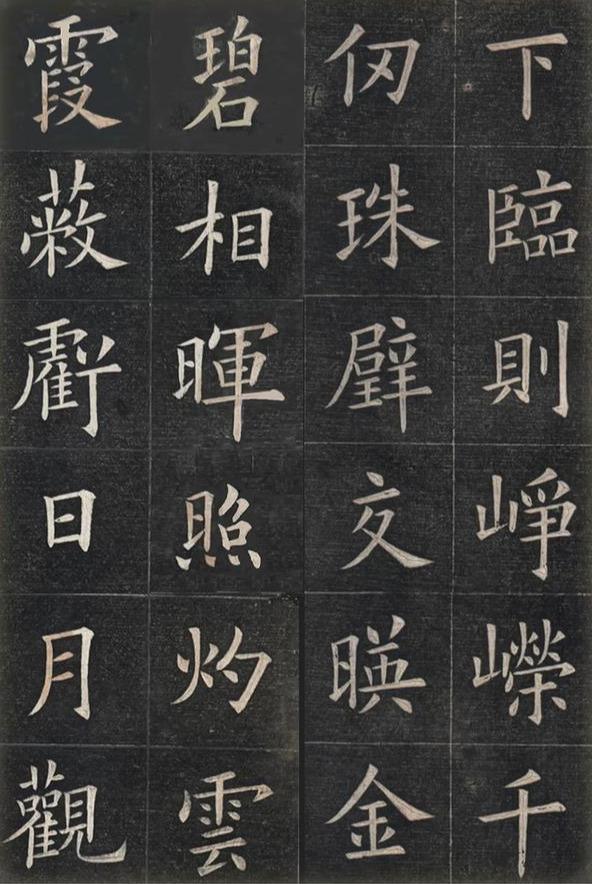 下臨則崢嶸千
仞珠璧交暎金
碧相暉照灼雲
霞蔽虧日月觀